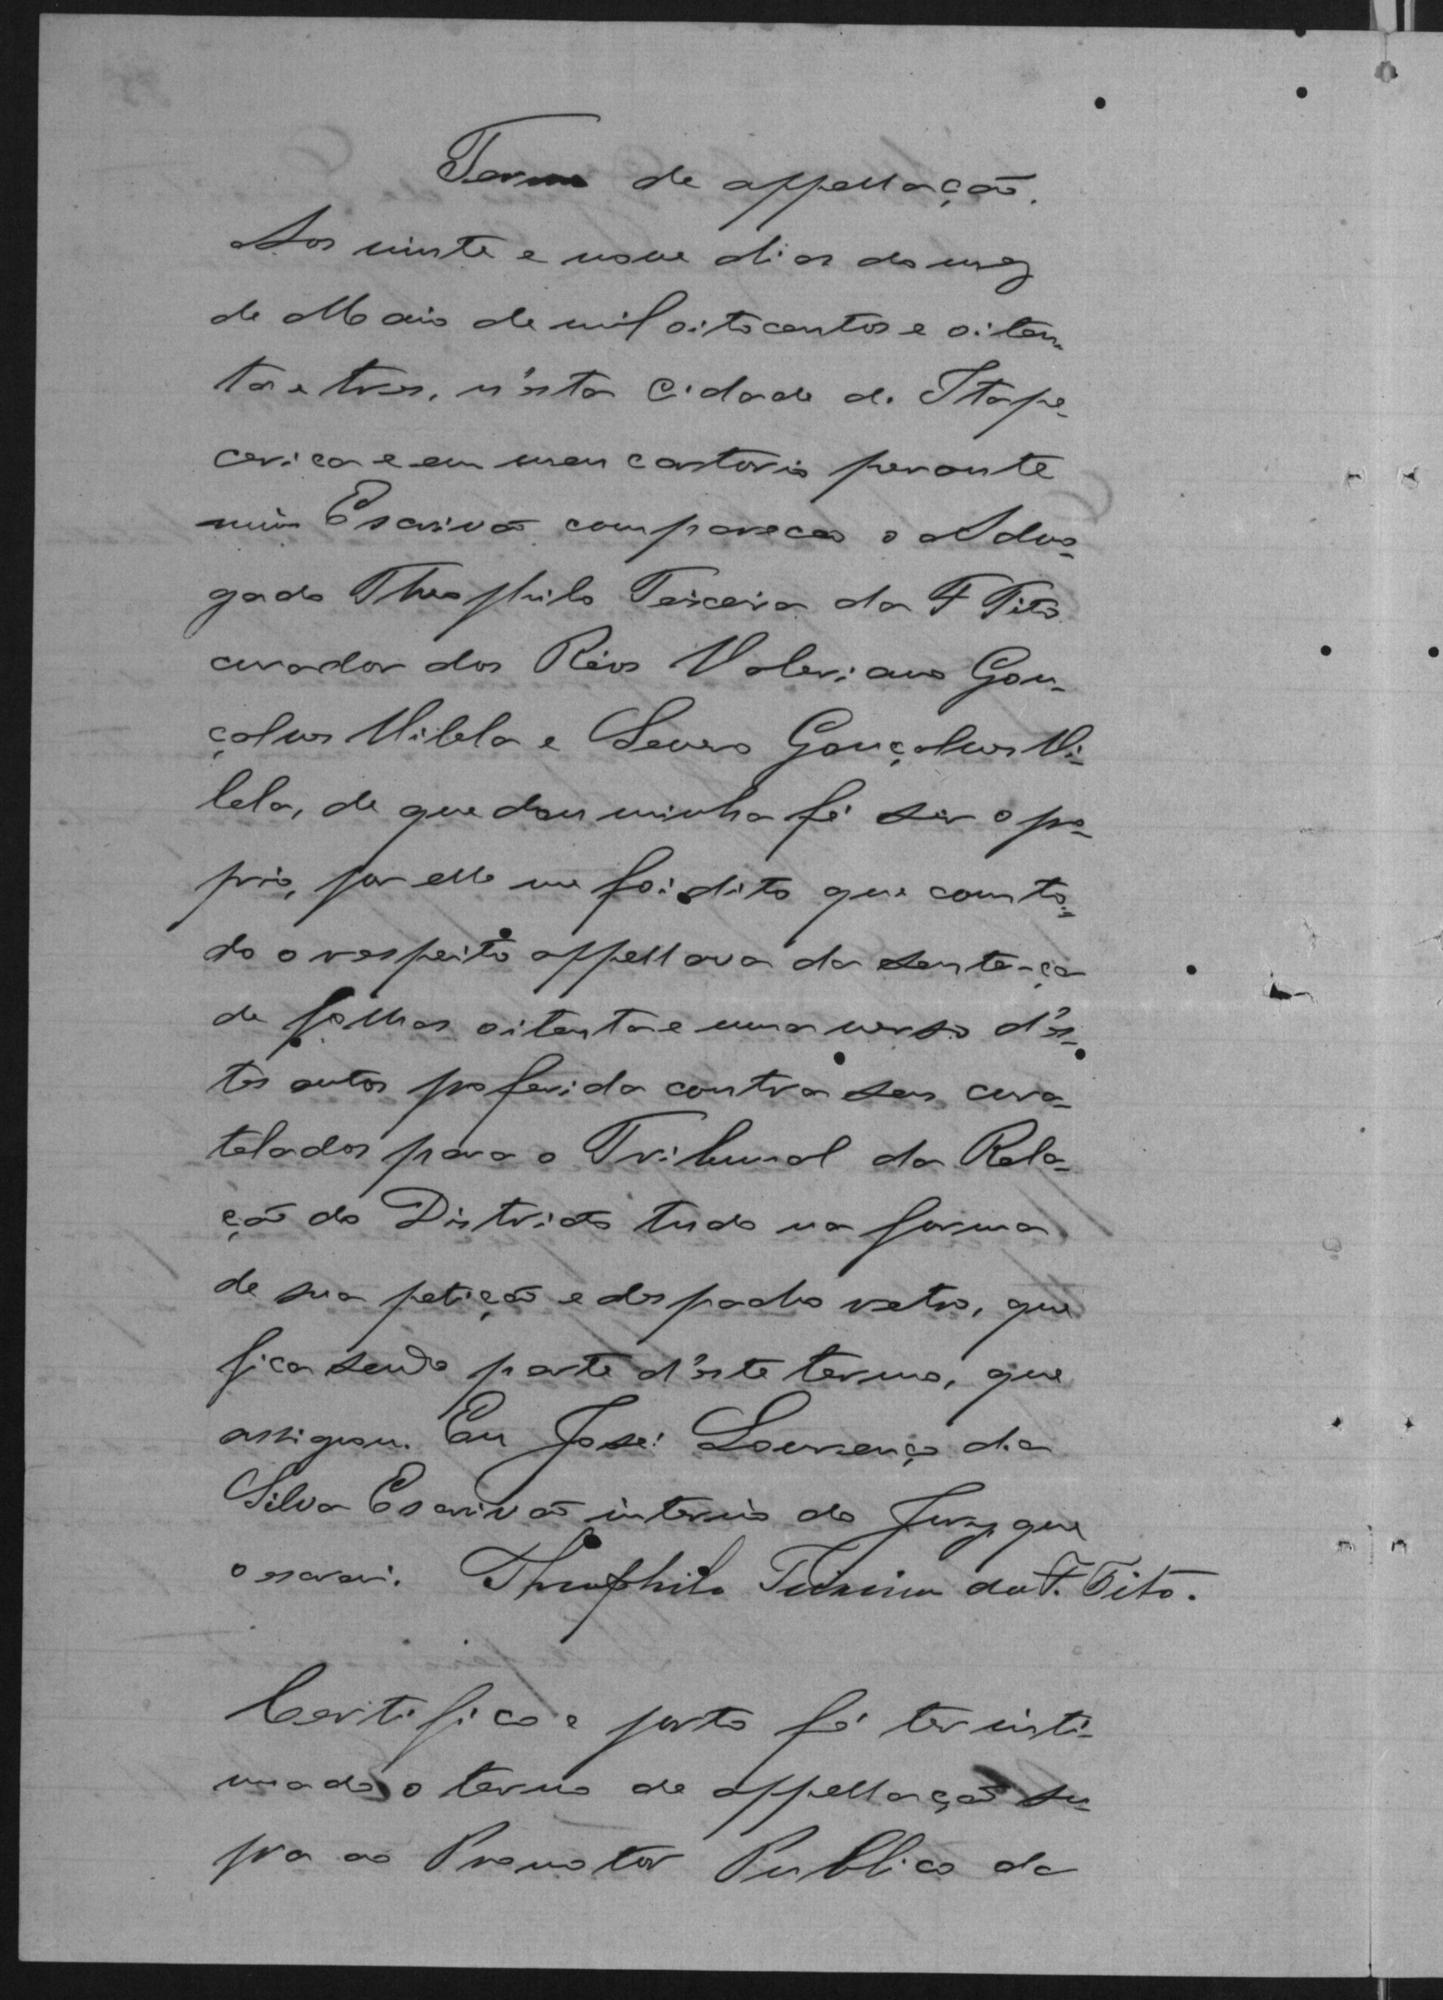 Termo de appellação.
Aos vinte e nove dias do mez
de Maio de mil oitocentos e oiten-
ta e tres, n'esta Cidade de Itape-
cerica e em meu cartorio perante
mim Escrivão compareceo o Advo-
gado Theophilo Teixeira da F Tito
curador dos Réos Valeriano Gon-
çalves Vilela e Severo Gonçalves Vi-
lela, de que dou minha fé ser o pro-
prio, por elle me foi dito que com to-
do o respeito appellava da sentença
de folhas oitenta e uma verso d'es-
tes autos proferida contra seus cura-
telados para o Tribunal da Rela-
ção do Districto tudo na forma
de sua petição e despacho retro, que
fica sendo parte d'este termo, que
assignou. Eu José Lourenço da
Silva Escrivão interino do Jury que
o escrevi. Theophilo Teixeira da F. Tito.
Certifico e porto fé ter inti-
mado o termo de appellação su-
pra ao Promotor Publico da